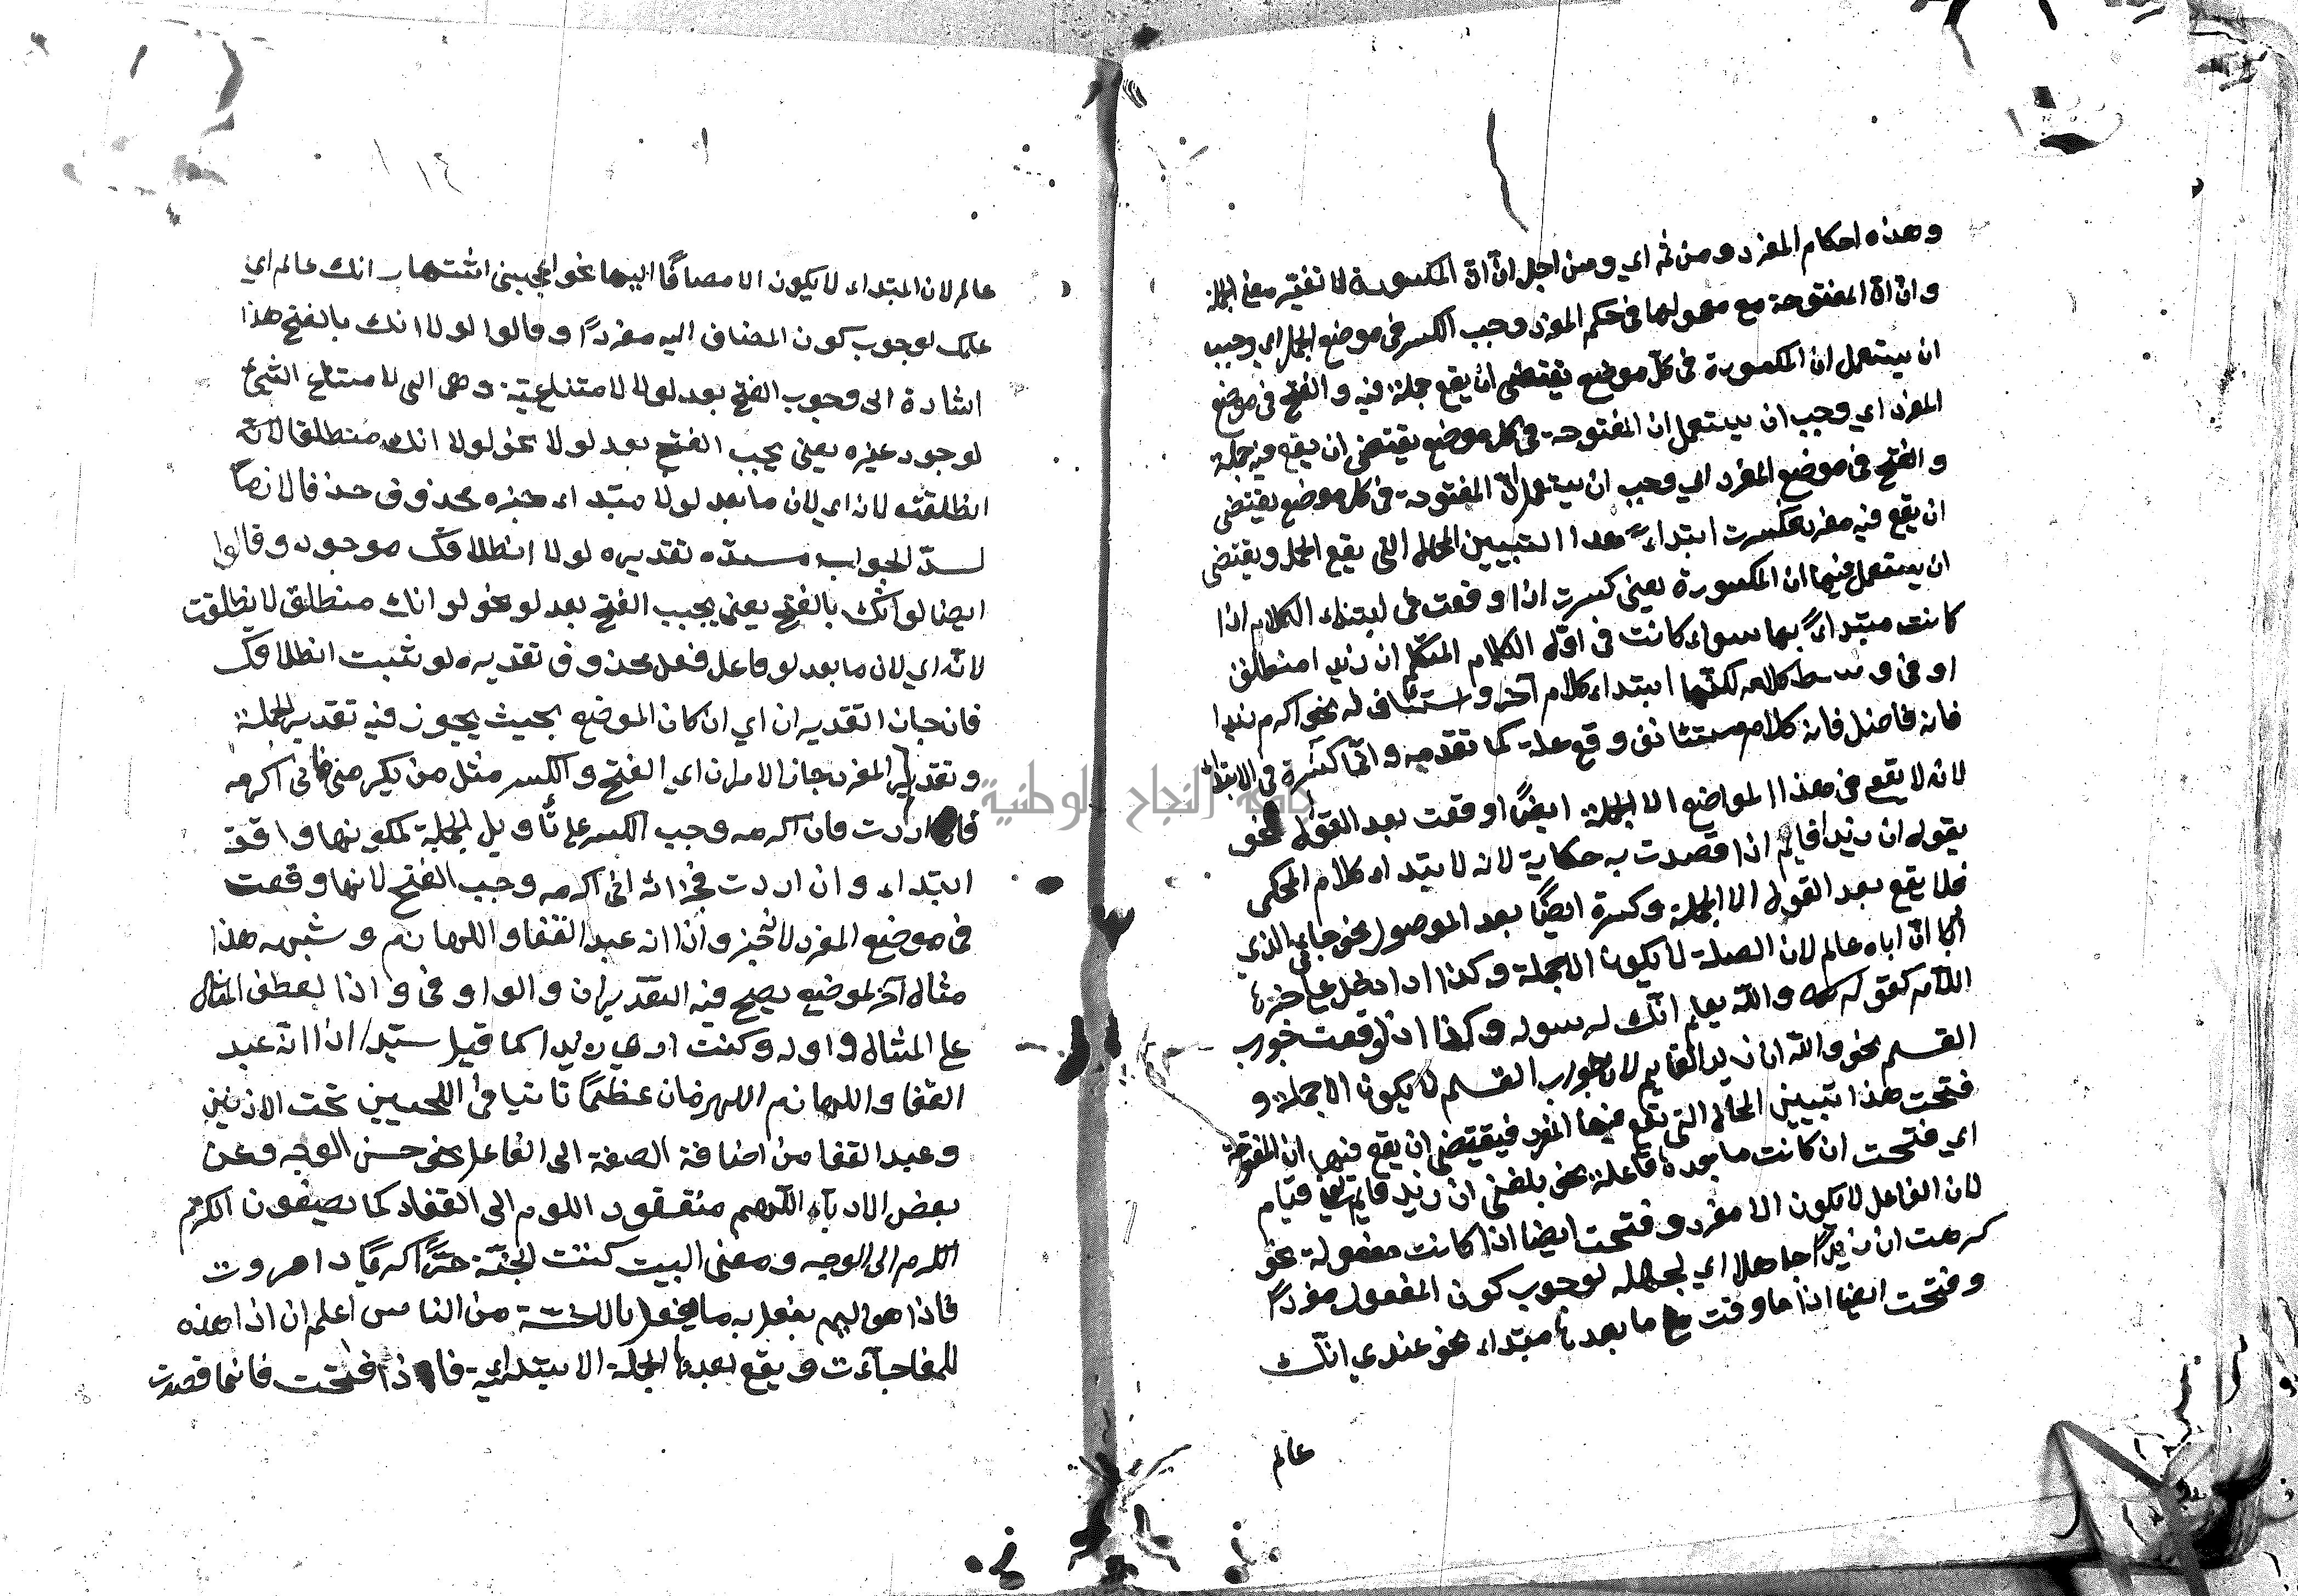 وهذه احكام المفرد ومن ثم اي ومن اجل ان ان المكسورة لا تغير معنى الجملة
وان ان المفتوحة مع معمولها في حكم المفرد وجب الكسر في موضع الجمل اي وجب
ان يستعمل ان المكسورة في كل موضع يقتضي ان يقع جملة فيه والفتح في موضع
المفرد اي وجب ان يستعمل ان المفتوحة في كل موضع يقتضي ان يقع فيه جملة
والفتح في موضع المفرد اي وجب ان يستعمل ان المفتوحة في كل موضع يقتضي
ان يقع فيه مفرد فكسرت ابتداءً هذا التبيين المحال التي يقع الجمل ويقتضي
ان يستعمل فيها ان المكسورة يعني كسرت اذا وقعت في ابتداء الكلام اذا
كانت مبتداءً بها سواء كانت في اول الكلام المتكلم ان زيدا منطلق
او في وسط كلامه لكنها ابتداء كلام آخر واستئناف له نحو اكرم زيدا
فانه فاضل فانه كلام مستئانف وقع علة لما تقدمه وانما كسرة في الابتداء
لانه لا يقع في هذا المواضع الا الجملة ايضًا او وقعت بعد القول نحو
يقول ان زيدا قايم اذا قصدت به حكاية لانه لابتداء كلام المحكي
فلا يقع بعد القول الا الجملة وكسرة ايضًا بعد الموصول نحو جاءني الذي
ان اباه عالم لان الصلة لا يكون الا جملة وكذا اذا دخل على خبرها
اللام كقوله والله يعلم انّك لرسوله وكذا اذا وقعت جواب
القسم نحو والله ان زيدا لقايم لان جواب القسم لا يكون الا جملة و
فتحت هذا تبيين المحال التي تقع فيها المفرد فيقتضي ان يقع فيها ان المفتوحة
اي فتحت ان كانت ما بعده فاعلة نحو بلغني ان زيد قايم اي قيام
لان الفاعل لا يكون الا مفرد وفتحت ايضا اذا كانت مفعولة نحو
كرهت ان زيدًا جاهلا اي لجهله لوجوب كون المفعول مفردًا
وفتحت ايضا اذا ما وقت ما بعدها مبتداء نحو عندي انّك
عالم
١٤
عالم لان المبتداء لا يكون الا مضافًا اليها نحو اعجبني اشتهار انك عالم اي
علمك لوجوب كون المضاف اليه مفردًا وقالوا لولا انك بالفتح هذا
اشارة الى وجوب الفتح بعد لولا لامتناعية وهي التي لامتناع الشيء
لوجود غيره يعني يجب الفتح بعد لولا نحو لولا انك منطلقا لانه
انطلقت لانه اي لان ما بعد لولا مبتداء خبره محذوف حذفا لازمًا
لسدّ الجواب مسدّه تقديره لولا انطلاقك موجود وقالوا
ايضا لو انّك بالفتح يعني يجب الفتح بعد لو نحو لو انك منطلق لانطلقت
لانّه اي لان ما بعد لو فاعل فعل محذوف تقديره لو ثبت انطلاقك
فان جاز التقديران اي ان كان الموضع بحيث يجوز فيه تقدير الجملة
وتقدير المفرد جاز الامران اي الفتح والكسر مثل من يكرمني فاني اكرمه
فان اردت فان اكرمه وجب الكسر على تأويل الجملة لكونها واقعة
ابتداء وان اردت فجزائه اني اكرمه وجب الفتح لانها وقعت
في موضع المفرد لانه خبر واذا انه عبد القفا واللهازم وشبهه هذا
مثال آخر لموضع يصح فيه التقديران والواو في واذا لعطف المثال
على المثال واوله وكنت ارى زيدا كما قيل سيدا اذا انه عبد
القفا واللهازم اللهزمان عظمًا ناتيا في اللحيين تحت الاذنين
وعبد القفا من اضافة الصفة الى الفاعل نحو حسن الوجه وعن
بعض الادباء اللهم يقصدون اللوم الى القفا كما يصيفون الكرم
الكرم الى الوجه ومعنى البيت كنت حرًا كريمًا ذا مروت
فاذا هو لئيم يفعل به ما يفعل من الناس اعلم ان اذا هذه
للمفاجآءت ويقع بعدها الجملة الابتدائية فاذا فتحت فانما قصدت
جامعة النجاح الوطنية